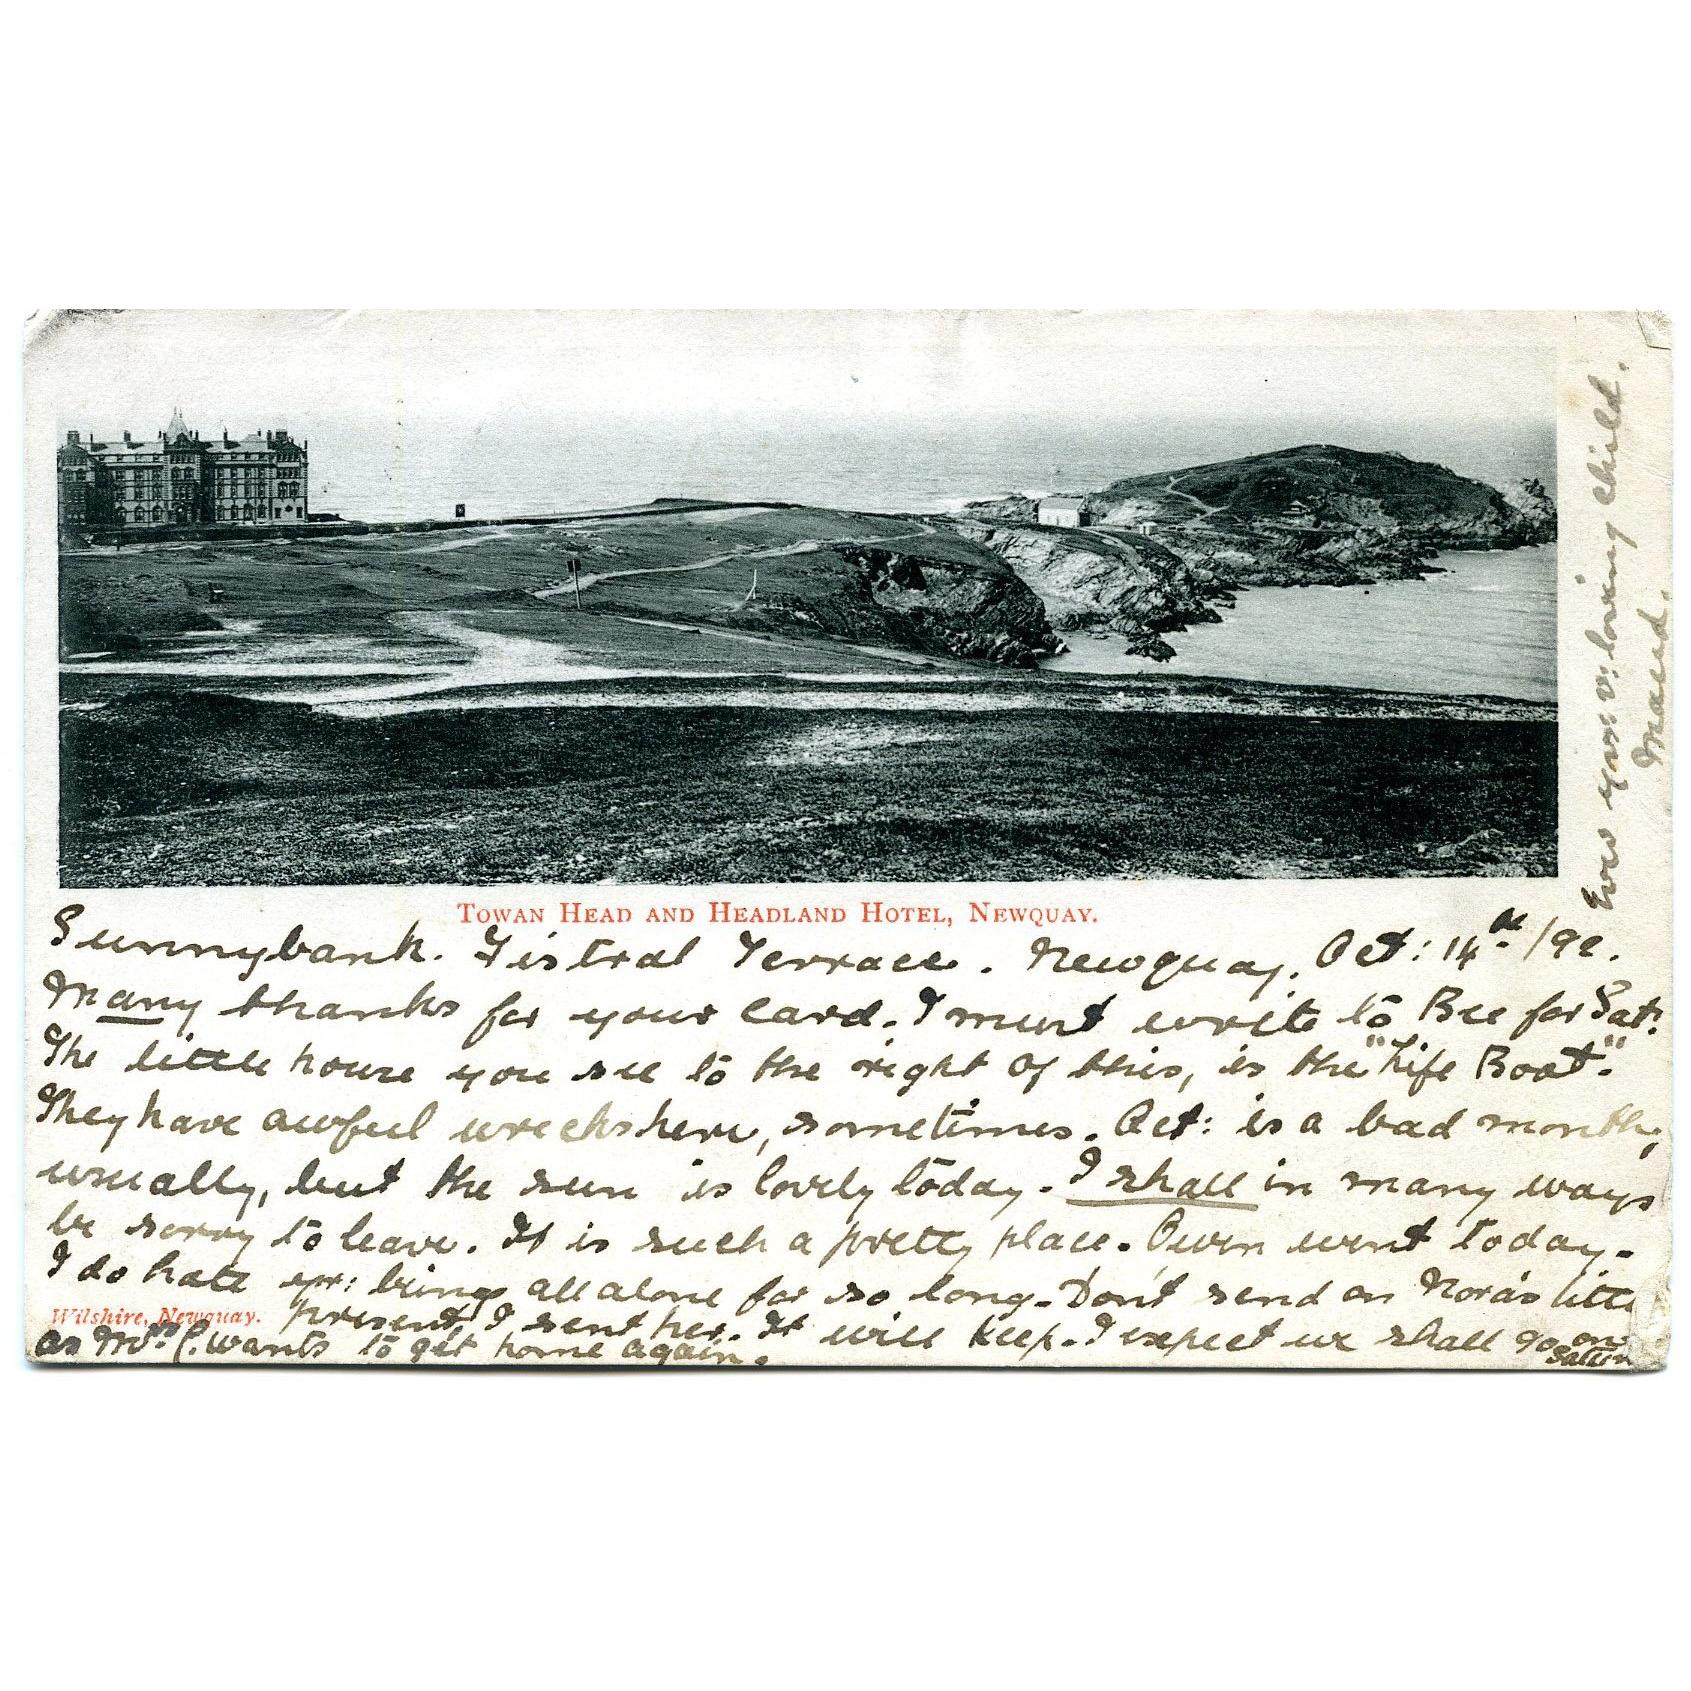 TOWAN HEAD AND HEADLAND HOTEL, NEWQUAY.
Sunnybank. Fistral Terrace. Newquay. Oct: 14th /92.
Many thanks for your card. I must write to Bee for Sat:
The little house you see to the right of this, is the "Life Boat".
They have awful wrecks here, sometimes. Oct: is a bad month,
usually, but the sun is lovely today. I shall in many ways
be sorry to leave. It is such a pretty place. Owen went today.
I do hate yr: being all alone for so long. Don't send on Nora's little
present, I sent her. It will keep. I expect we shall go on
as Mrs C. wants to get home again.
Wilshire, Newquay.
Ever yrs v: loving child.
Maud.